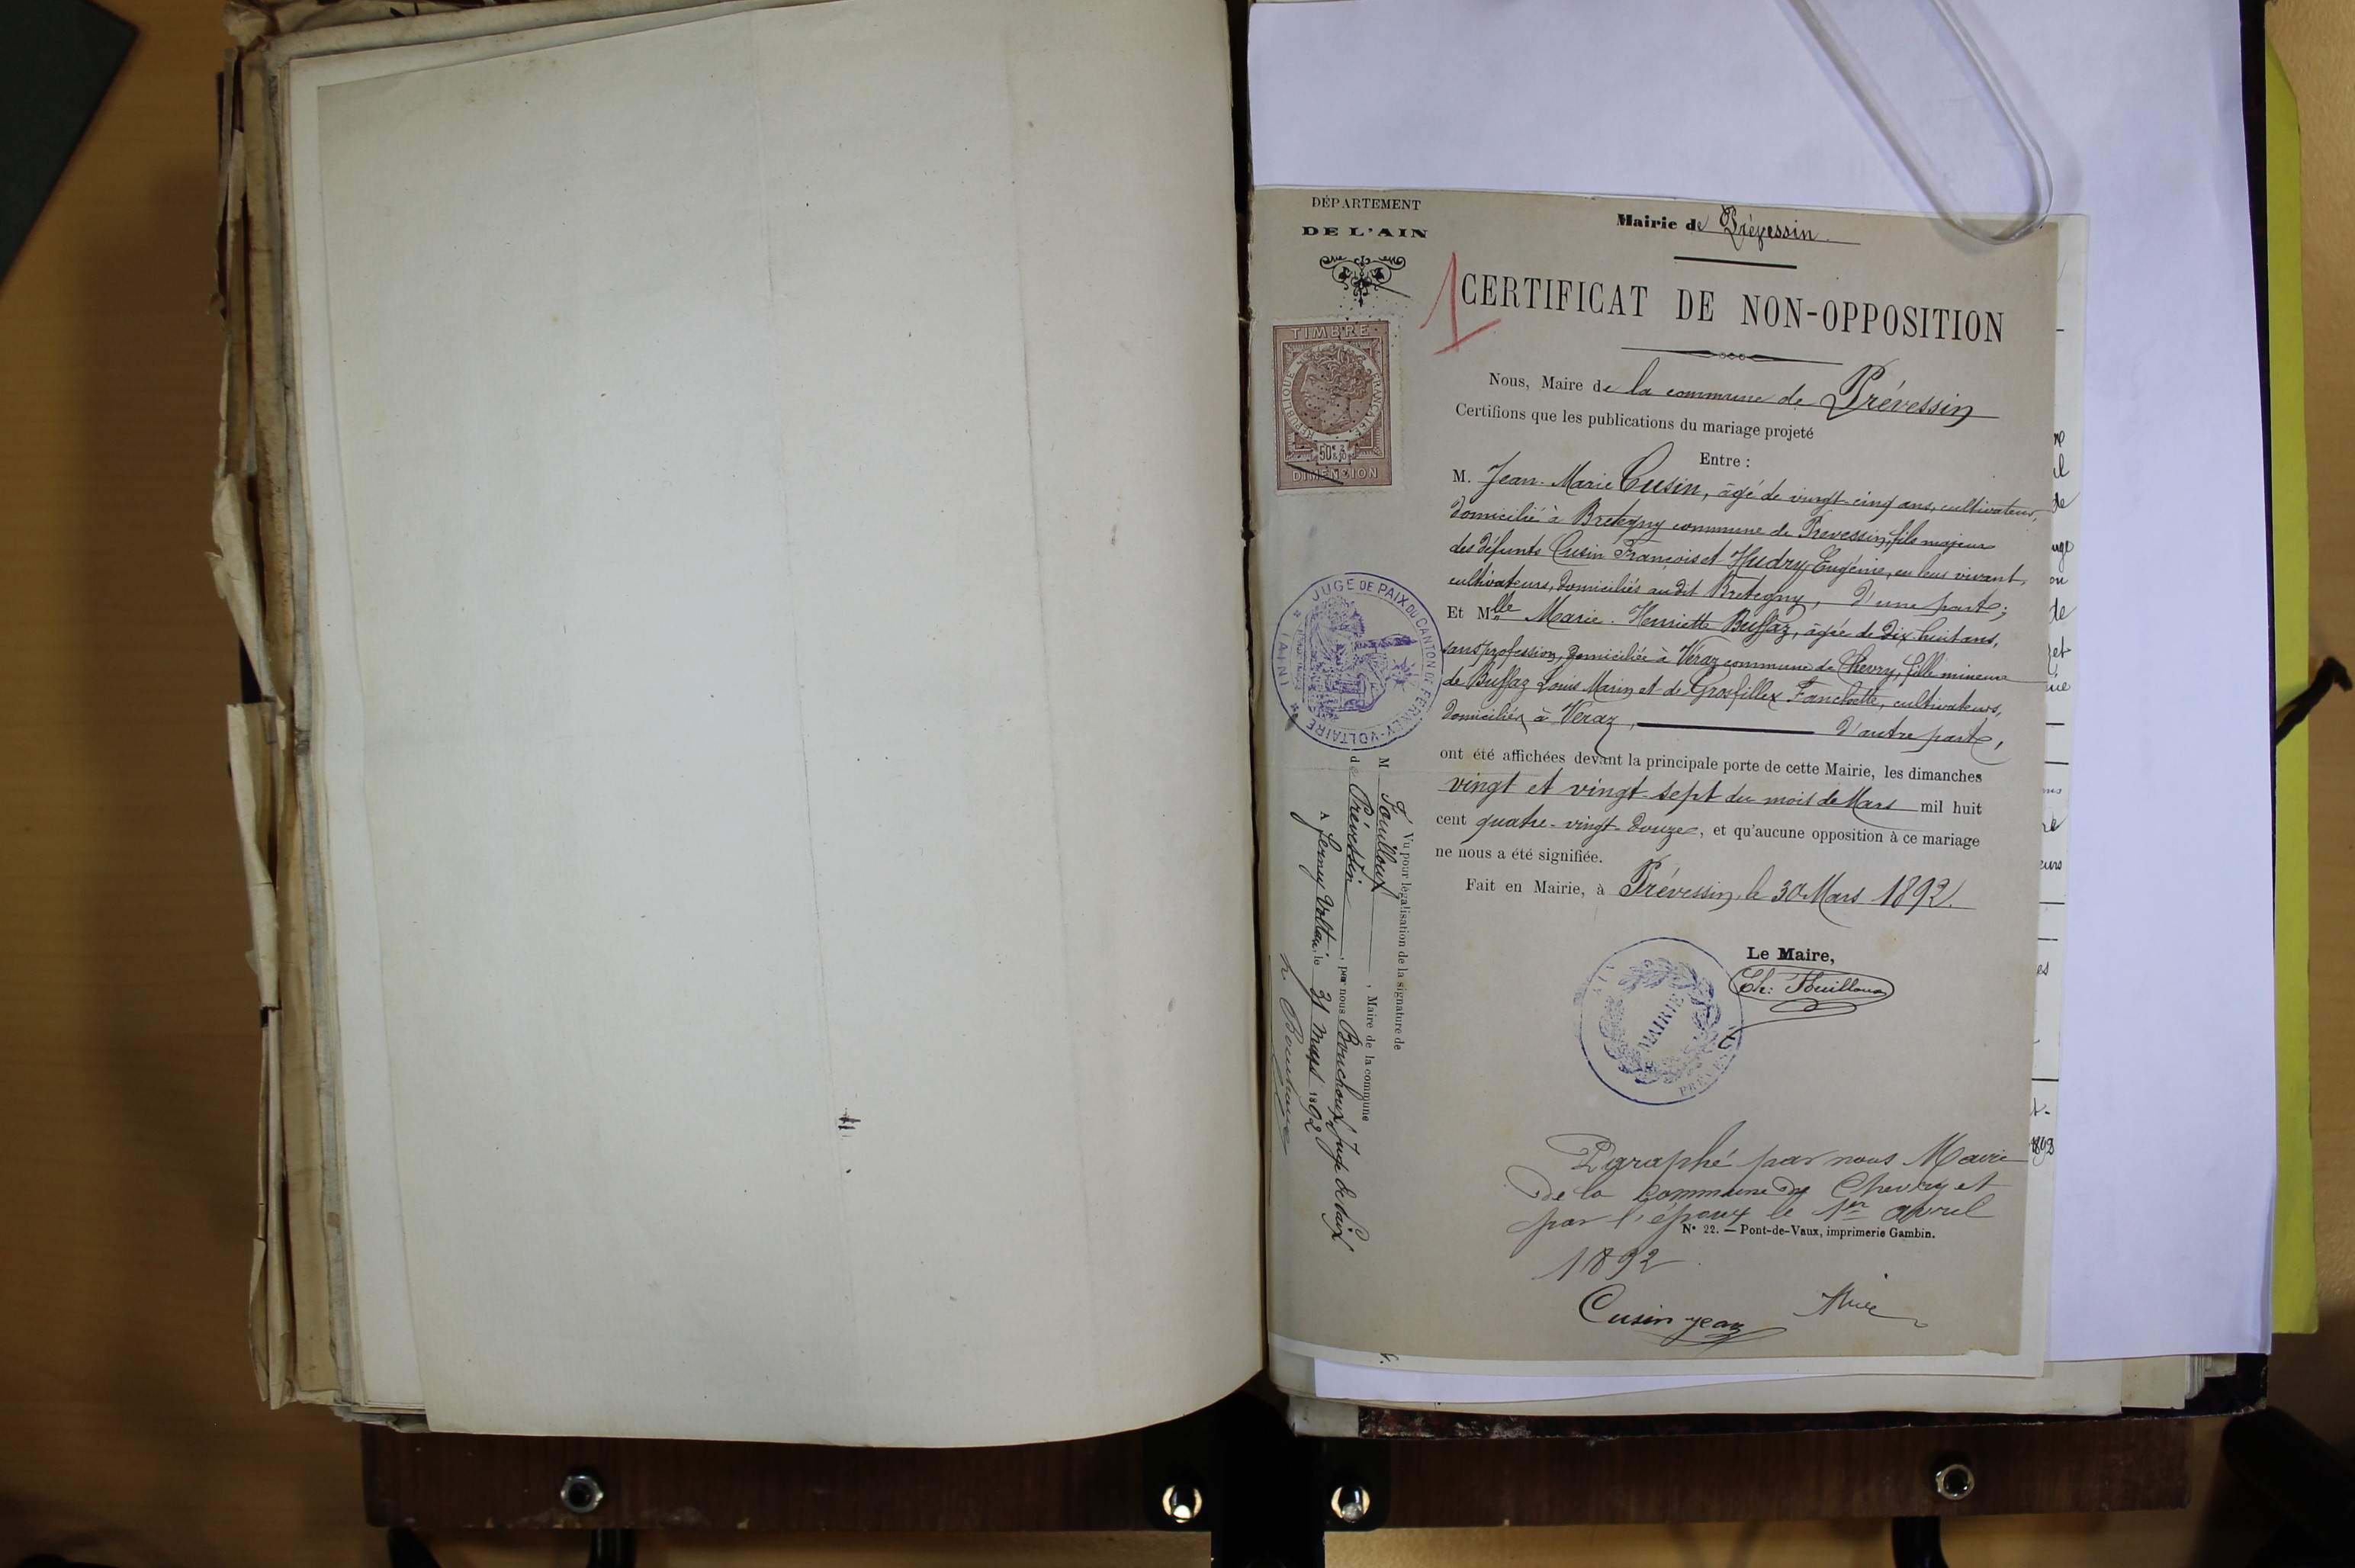 DÉPARTEMENT
DE L'AIN
Mairie de Prévessin
1
CERTIFICAT DE NON-OPPOSITION
TIMBRE
RÉPUBLIQUE FRANÇAISE
50c
DIMENSION
Nous, Maire de la commune de Prévessin
Certifions que les publications du mariage projeté
Entre :
M. Jean-Marie Cusin, âgé de vingt-cinq ans, cultivateur,
domicilié à Bretigny commune de Prevessin, fils majeur
des défunts Cusin François et Hudry Eugénie, en leur vivant,
cultivateurs, domiciliés au dit Bretegny, d'une part;
Et Mlle Marie-Henriette Buffaz, âgée de dix-huit ans,
sans profession, domiciliée à Véraz commune de Chevry, fille mineure
de Buffaz Louis Marin et de Grosfillex Fanchette, cultivateurs,
domiciliés à Véraz, d'autre part,
ont été affichées devant la principale porte de cette Mairie, les dimanches
vingt et vingt-sept du mois de Mars mil huit
cent quatre-vingt-douze, et qu'aucune opposition à ce mariage
ne nous a été signifiée.
Fait en Mairie, à Prévessin, le 30 Mars 1892.
Le Maire,
Ch: Fouilloux
MAIRIE
AIN
JUGE DE PAIX DU CANTON DE FERNEY-VOLTAIRE
(AIN)
Vu pour légalisation de la signature de
M Fouilloux, Maire de la commune
de Prévessin, par nous Bouchoux, Juge de Paix
A Ferney-Voltaire, le 31 mars 1892
Pgraphé par nous Maire
de la commune de Chevry et
par l'époux le 1er avril
1892
N° 22. — Pont-de-Vaux, imprimerie Gambin.
Cusin jean